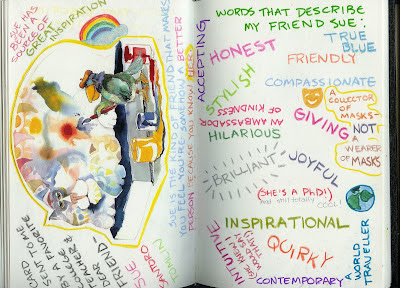 SUE HAS
BEEN A
SOURCE OF
GREAT INSPIRATION
CARD
SENT TO ME
BY FAVORITE
COLLEGE
TEACHER &
DEAR
FRIEND-
SUE
SANTORO
TOMLIN
SUE IS THAT KIND OF FRIEND THAT MAKES
YOU FEEL YOU'RE SOMEHOW A BETTER
PERSON BECAUSE YOU KNOW HER!
WORDS THAT DESCRIBE
MY FRIEND SUE:
ACCEPTING
HONEST
TRUE
BLUE
FRIENDLY
STYLISH
COMPASSIONATE
AN AMBASSADOR
OF KINDNESS
A COLLECTOR
OF MASKS-
NOT
A
WEARER
OF MASKS
GIVING
HILARIOUS
BRILLIANT
JOYFUL
(SHE'S A PhD!)
and still totally
COOL!
INSPIRATIONAL
INTUITIVE
(SHE KNEW
THAT!)
QUIRKY
A WORLD
TRAVELLER
CONTEMPORARY